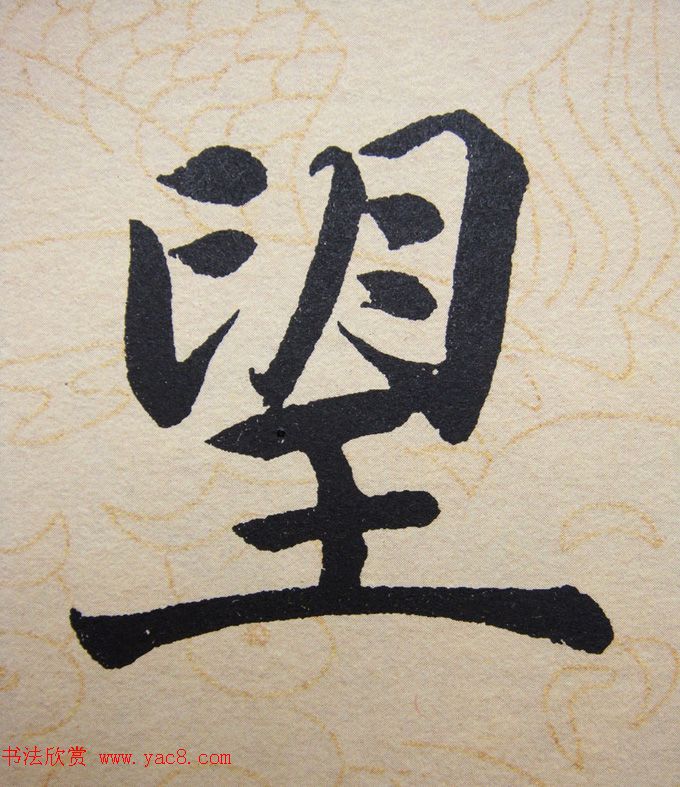 望
书法欣赏 www.yac8.com